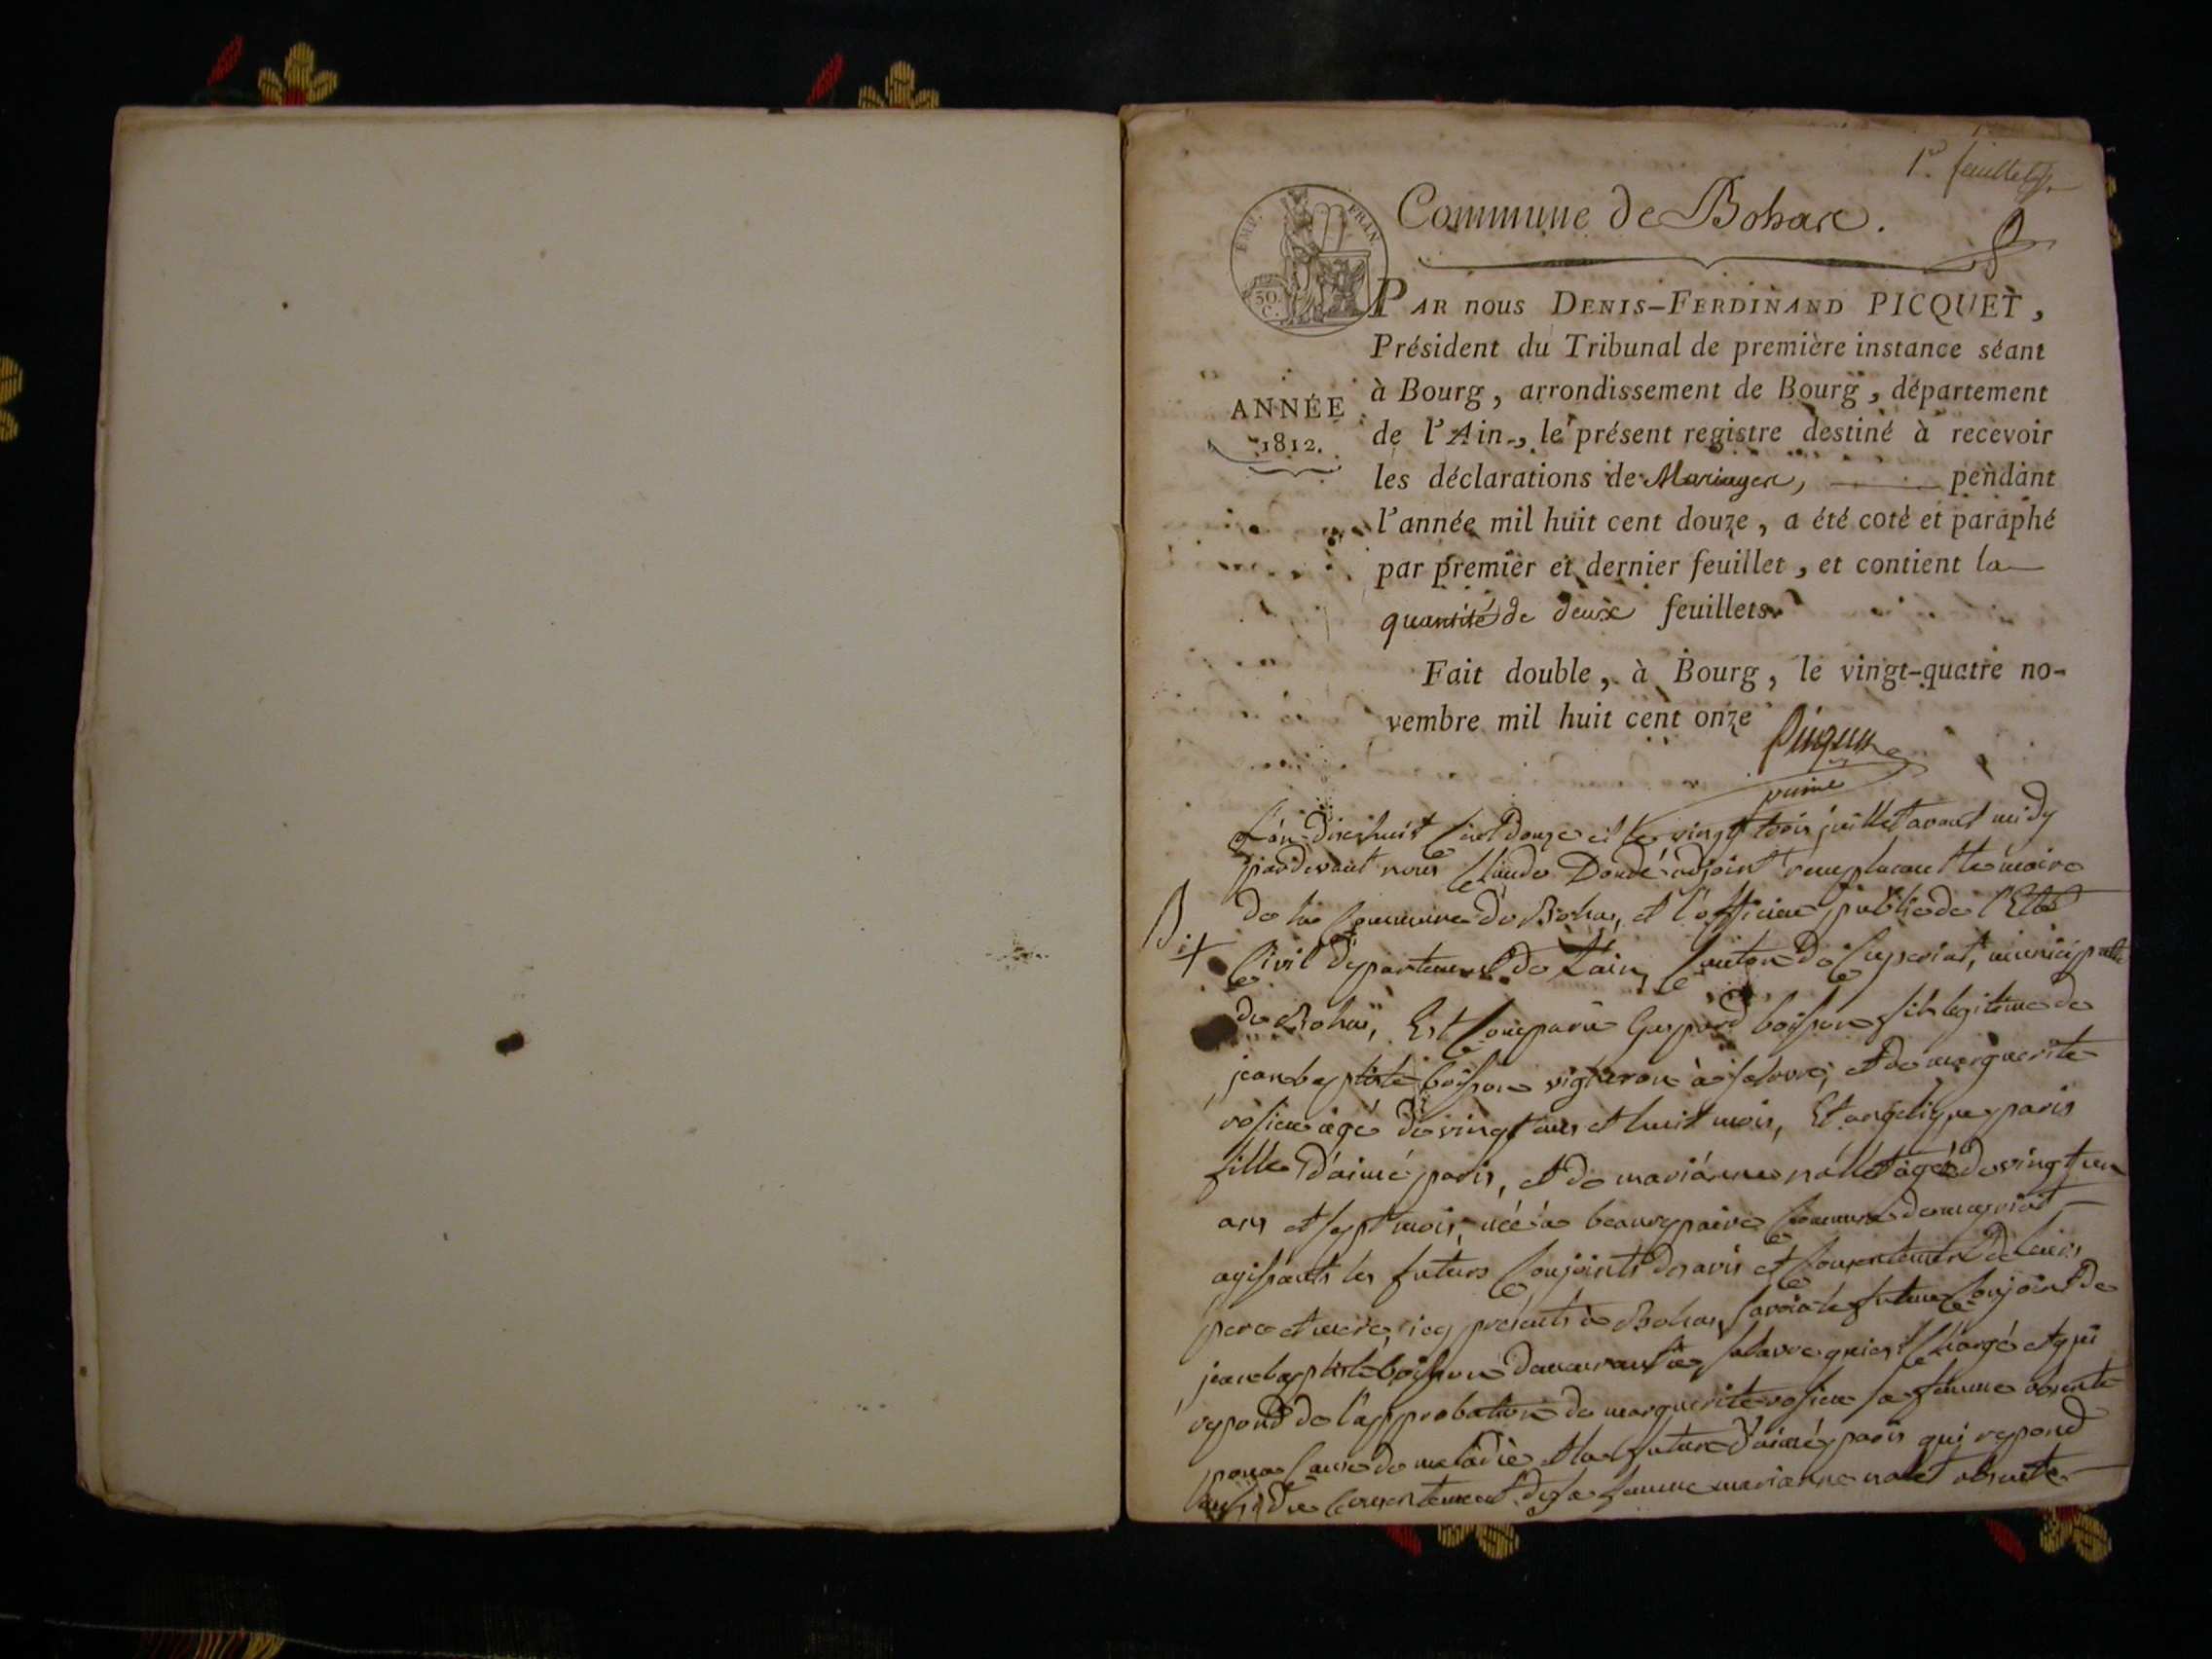 1er feuillet
Commune de Bohas.
EMP. FRAN.
50. C.
PAR nous DENIS-FERDINAND PICQUET,
Président du Tribunal de première instance séant
à Bourg, arrondissement de Bourg, département
ANNÉE
1812.
de l'Ain, le présent registre destiné à recevoir
les déclarations de Mariages, pendant
l'année mil huit cent douze, a été coté et paraphé
par premier et dernier feuillet, et contient la
quantité de deux feuillets.
Fait double, à Bourg, le vingt-quatre no-
vembre mil huit cent onze
Picquet
L'an dixhuit Cent douze et le vingt trois juillet avant midy
pardevant nous Claude Dondé adjoint remplacant le maire
de la Commune de Bohas, et l'officier public de l'Etat
B.
Civil département de L'ain, Canton de Ceyseriat, municipalité
de Bohas, Est Comparu Gaspard boisson fils legitime de
jean baptiste boisson vigneron à salavre, et de marguerite
rosier agé de vingt ans et huit mois, Et angelique paris
fille d'aimé paris, et de marianne nallet agée de vingt un
ans et sept mois, née à beaurepaire Commune de meyriat
agissants les futurs Conjoints des avis et Consentement de leurs
pere et mere, icy présents à Bohas, savoir le futur Conjoint de
jean baptiste boisson demeurant à salavre qui est Chargé et qui
repond de l'approbation de marguerite rosier sa femme absente
pour Cause de maladie et la future d'aimé paris qui repond
aussi du Consentement de sa femme marianne nalet absente